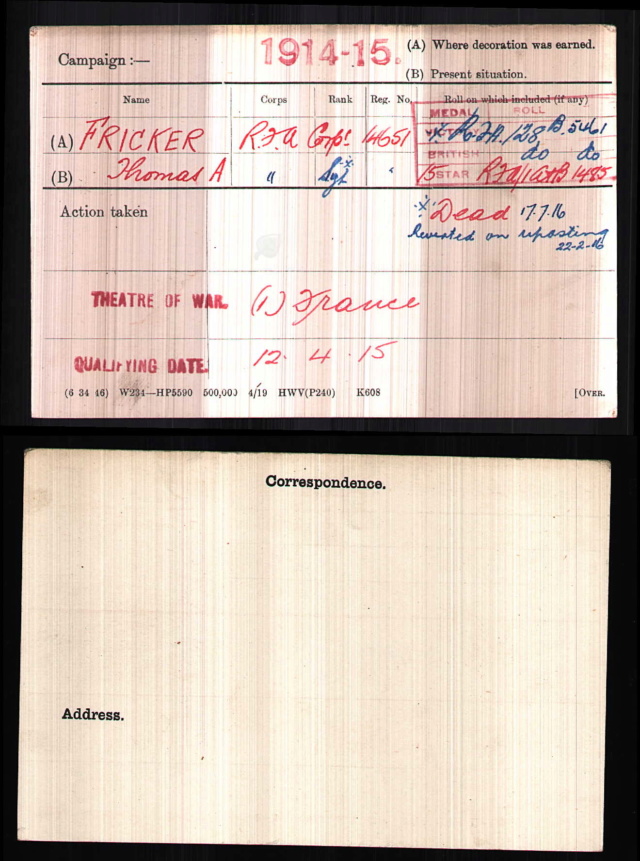 Campaign :— 1914-15. (A) Where decoration was earned.
(B) Present situation.
Name Corps Rank Reg. No. Roll on which included (if any)
MEDAL ROLL
(A) FRICKER R.F.A Corpl 14651 * R.F.A./128 B. 5461
BRITISH do do
(B) Thomas A " Sgt* " 15 STAR RFA/1 1485
Action taken * Dead 17.7.16
Reverted on reposting
22-2-16
THEATRE OF WAR. (1) France
QUALIFYING DATE. 12. 4. 15
(6 34 46) W234—HP5590 500,000 4/19 HWV(P240) K608 [OVER.
Correspondence.
Address.